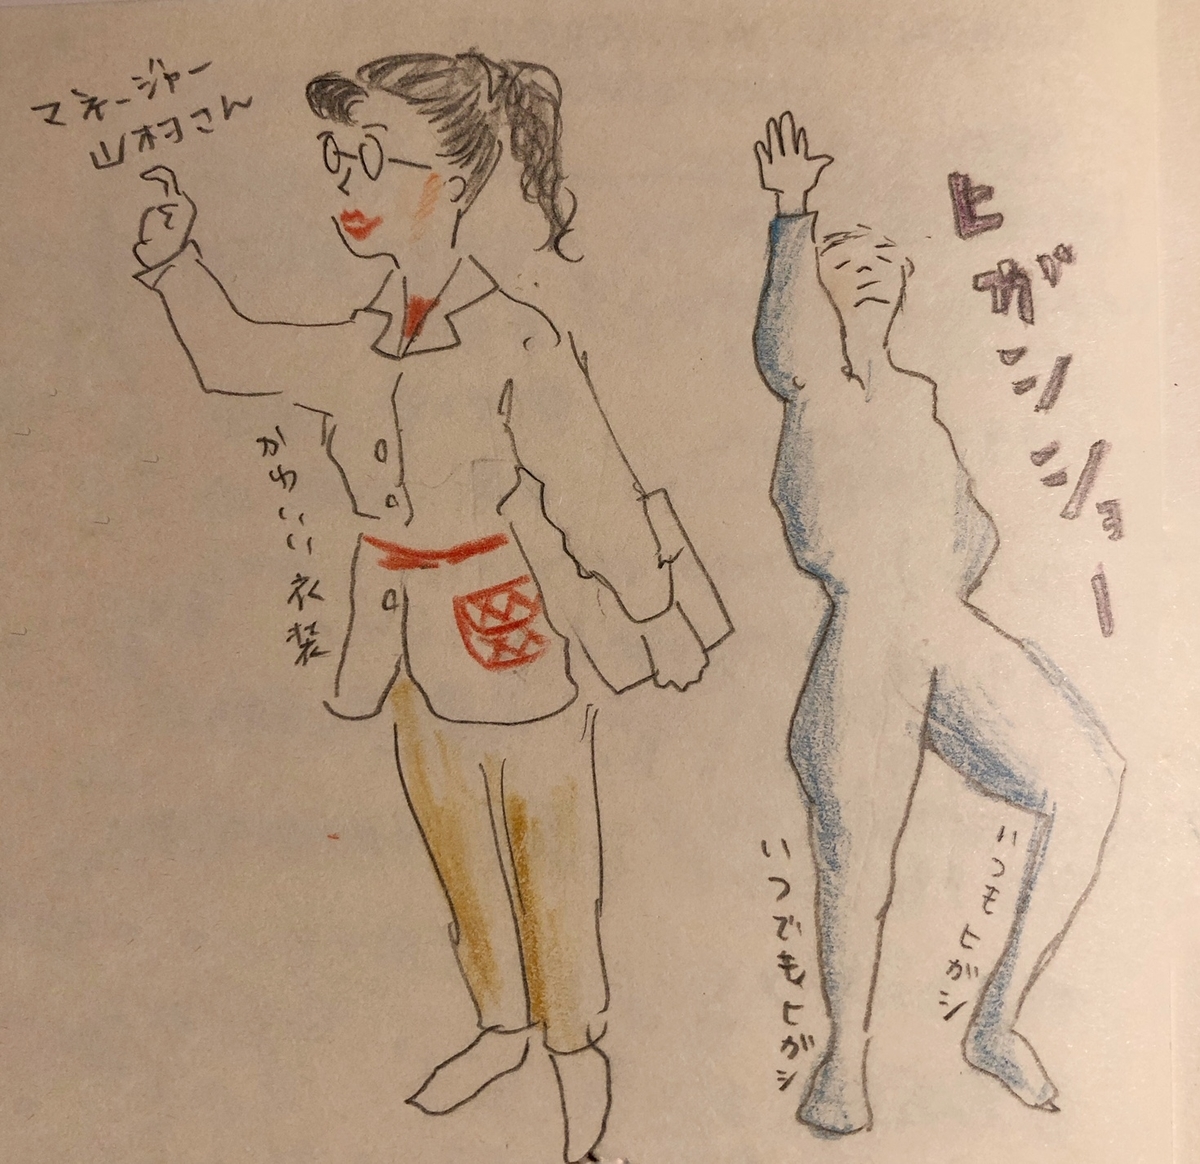 マネージャー
山村さん
かわいい衣装
ヒガシショー
いつでもヒガシ
いつもヒガシ